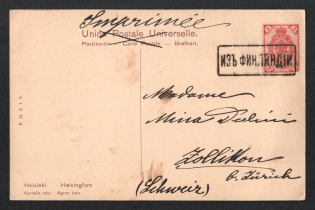 Imprimée
Union Postale Universelle.
Postkortti — Carte Postale — Brefkort.
ИЗЪ ФИНЛЯНДІИ.
Madame
Mina
Zollikon
b. Zürich
(Schweiz)
Helsinki. Helsingfors